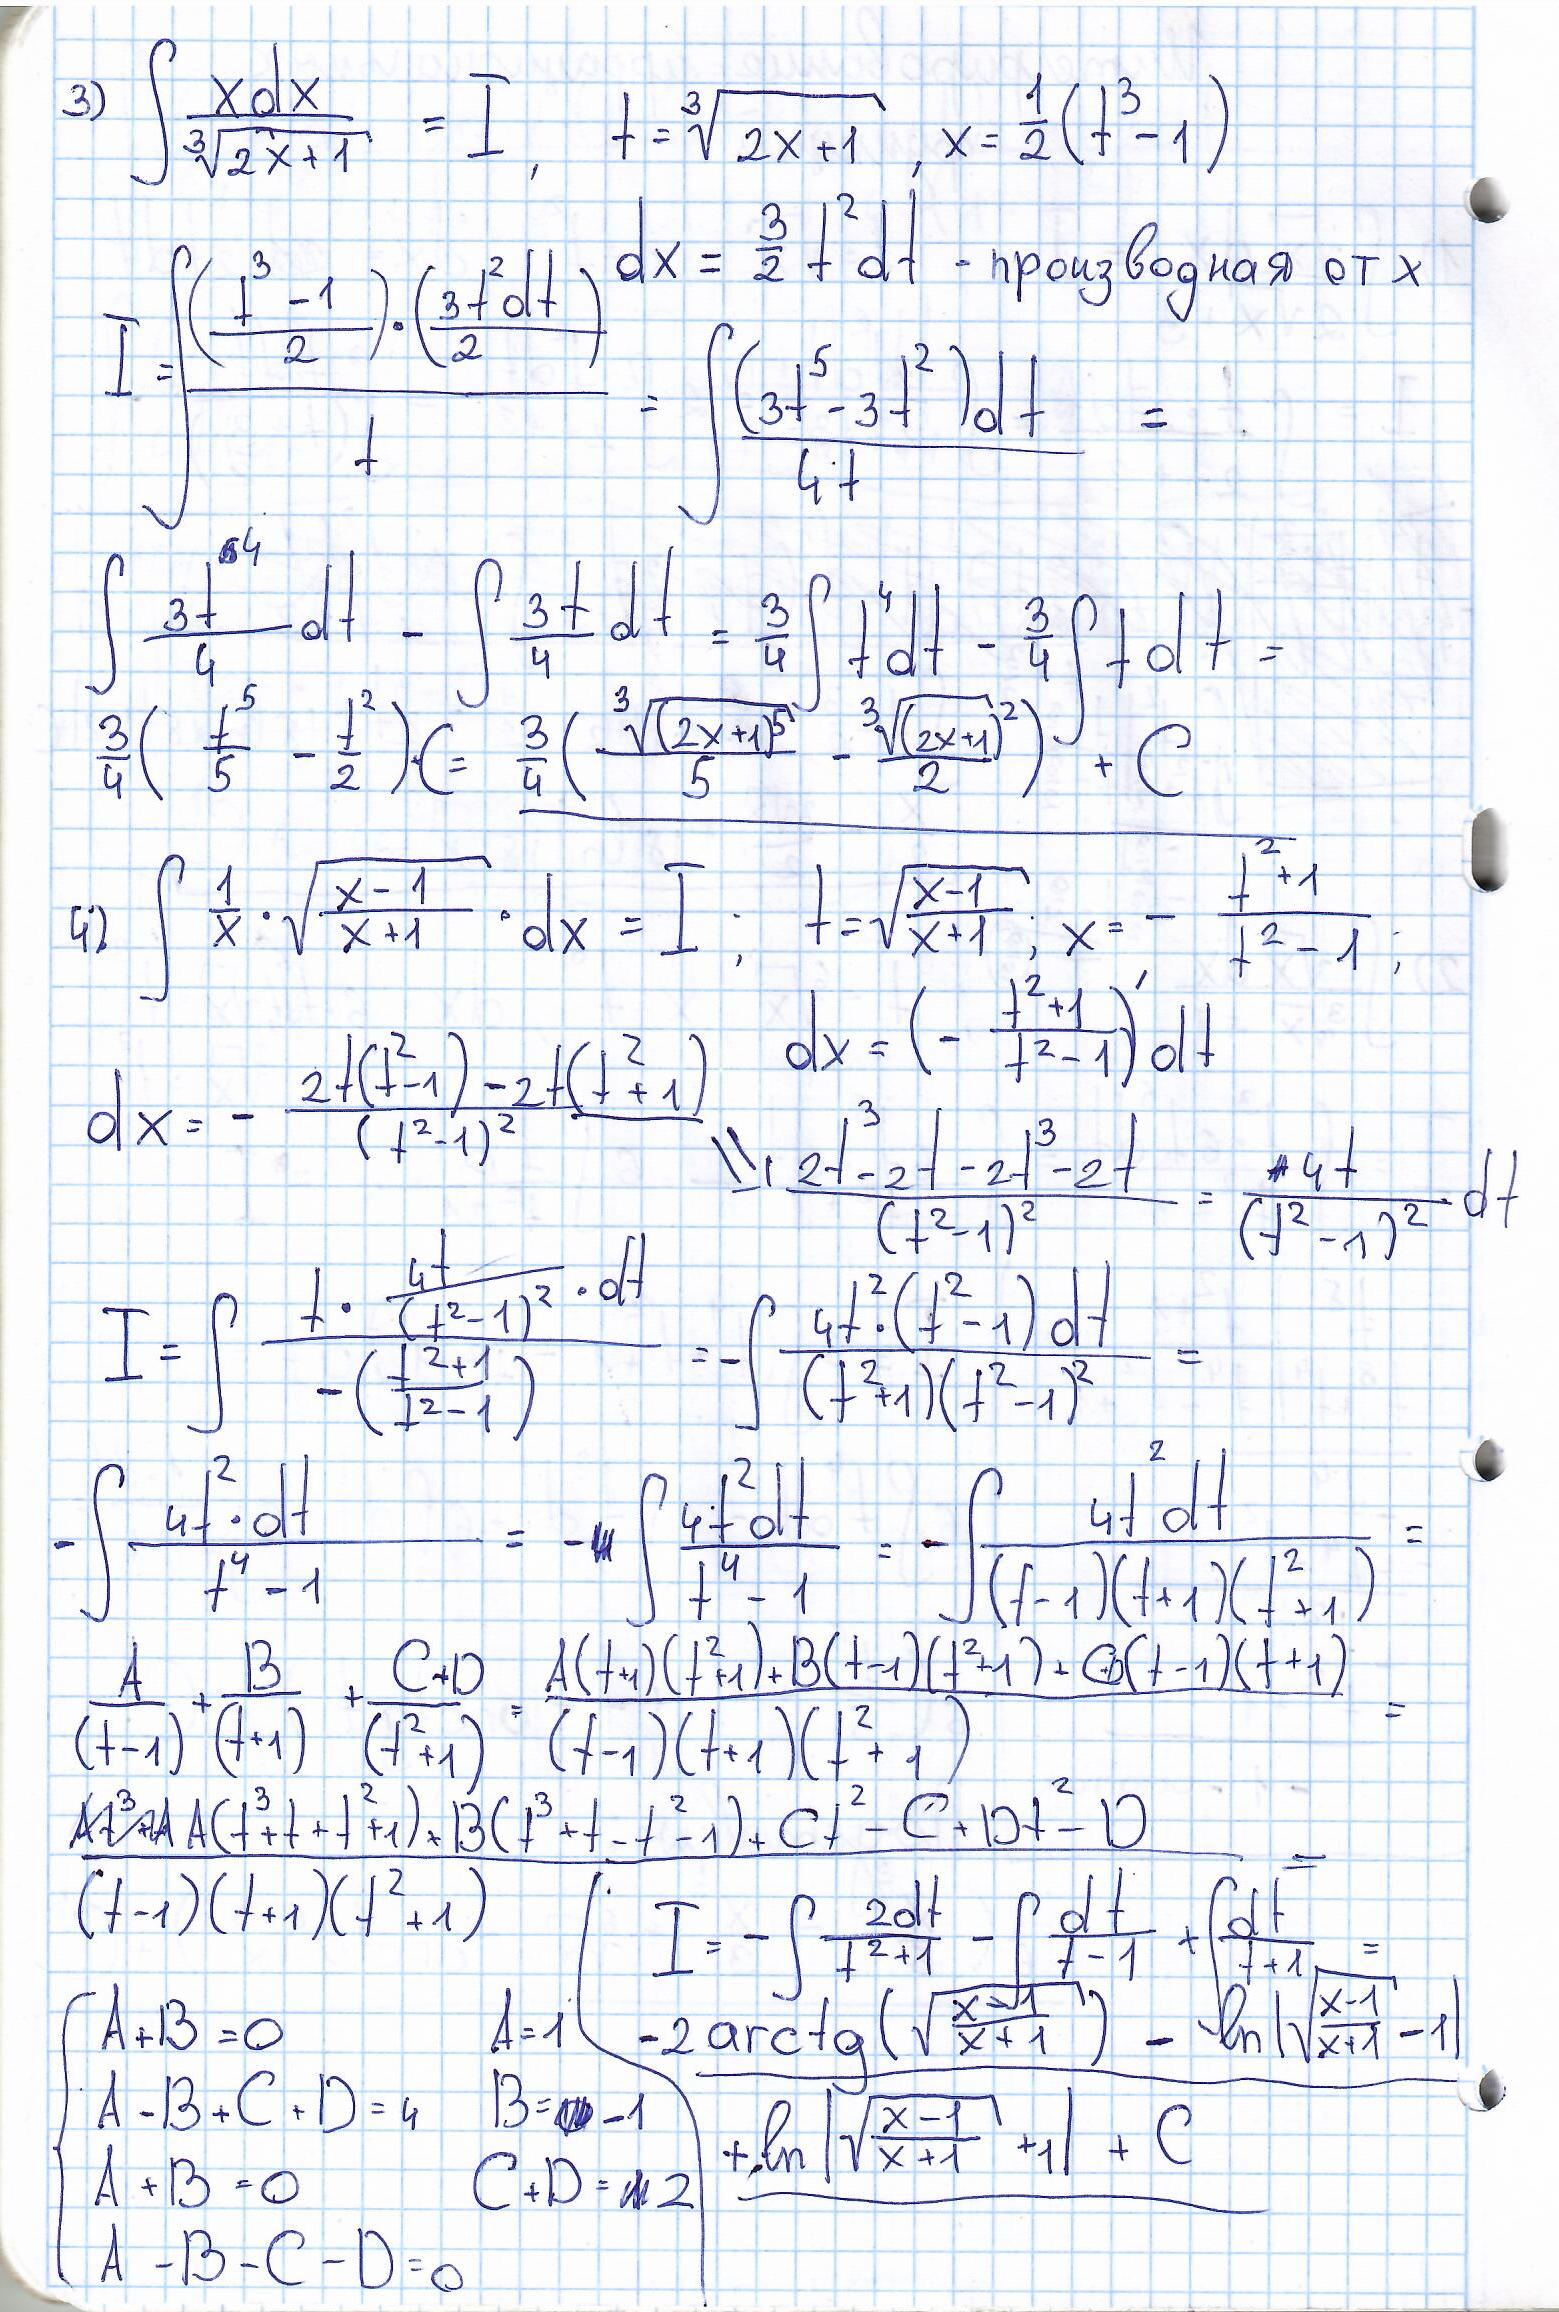 3) ∫ xdx / ∛(2x+1) = I, t = ∛(2x+1), x = 1/2 (t³ - 1)
dx = 3/2 t² dt - производная от x
I = ∫ ((t³ - 1)/2) · (3t² dt / 2) / t = ∫ (3t⁵ - 3t²) dt / 4t =
∫ 3t⁴/4 dt - ∫ 3t/4 dt = 3/4 ∫ t⁴ dt - 3/4 ∫ t dt =
3/4 (t⁵/5 - t²/2) + C = 3/4 (∛(2x+1)⁵ / 5 - ∛(2x+1)² / 2) + C
4) ∫ 1/x · √((x-1)/(x+1)) · dx = I; t = √((x-1)/(x+1)); x = - (t²+1)/(t²-1);
dx = (- (t²+1)/(t²-1))' dt
dx = - (2t(t²-1) - 2t(t²+1)) / (t²-1)²
(2t³ - 2t - 2t³ - 2t) / (t²-1)² = 4t / (t²-1)² dt
I = ∫ t · 4t/(t²-1)² · dt / -((t²+1)/(t²-1)) = - ∫ 4t² · (t²-1) dt / (t²+1)(t²-1)² =
- ∫ 4t² · dt / (t⁴ - 1) = - ∫ 4t² dt / (t⁴ - 1) = - ∫ 4t² dt / (t-1)(t+1)(t²+1) =
A/(t-1) + B/(t+1) + (C+D)/(t²+1) = (A(t+1)(t²+1) + B(t-1)(t²+1) + C+D(t-1)(t+1)) / (t-1)(t+1)(t²+1) =
(A(t³+t+t²+1) + B(t³+t-t²-1) + Ct² - C + Dt² - D) / (t-1)(t+1)(t²+1) =
A+B=0 A=1
A-B+C+D=4 B=-1
A+B=0 C+D=2
A-B-C-D=0
I = - ∫ 2dt/(t²+1) - ∫ dt/(t-1) + ∫ dt/(t+1) =
-2 arctg(√((x-1)/(x+1))) - ln|√((x-1)/(x+1)) - 1|
+ ln|√((x-1)/(x+1)) + 1| + C